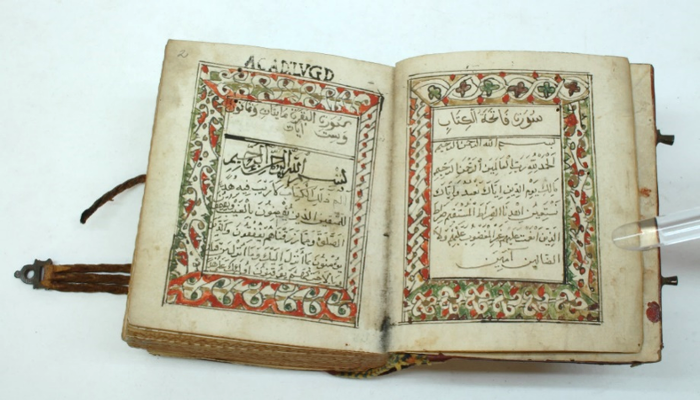 سورة فاتحة الكتاب
بسم الله الرحمن الرحيم
الحمد لله رب العالمين الرحمن الرحيم
مالك يوم الدين إياك نعبد وإياك
نستعين اهدنا الصراط المستقيم صراط
الذين أنعمت عليهم غير المغضوب عليهم ولا
الضالين آمين
2
ACADLVGD
سورة البقرة مايتان وثمانون
وست آيات
بسم الله الرحمن الرحيم
الم ذلك الكتاب لا ريب فيه هدى
للمتقين الذين يؤمنون بالغيب ويقيمون
الصلوة ومما رزقناهم ينفقون والذين
يؤمنون بما أنزل إليك وما أنزل من قبلك